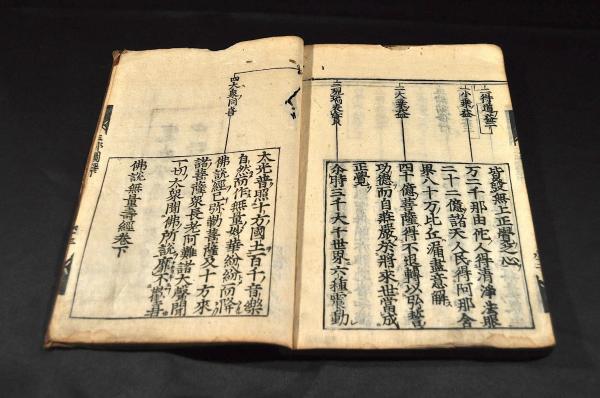 得道益
小乗益
大乗益
皆發無上正覺之心
万二千那由佗人得清淨法眼
二十二億諸天人民得阿那含
果八十万比丘漏盡意解
四十億菩薩得不退轉以弘誓
功德而自莊嚴於將來世當成
正覺
尒時三千大千世界六種震動
四大衆同喜
大光普照十方國土百千音樂
自然而作無量妙華紛紛而降
佛說經已弥勒菩薩及十方來
諸菩薩衆長老阿難諸大聲聞
一切大衆聞佛所說靡不歡喜
佛說無量壽經卷下